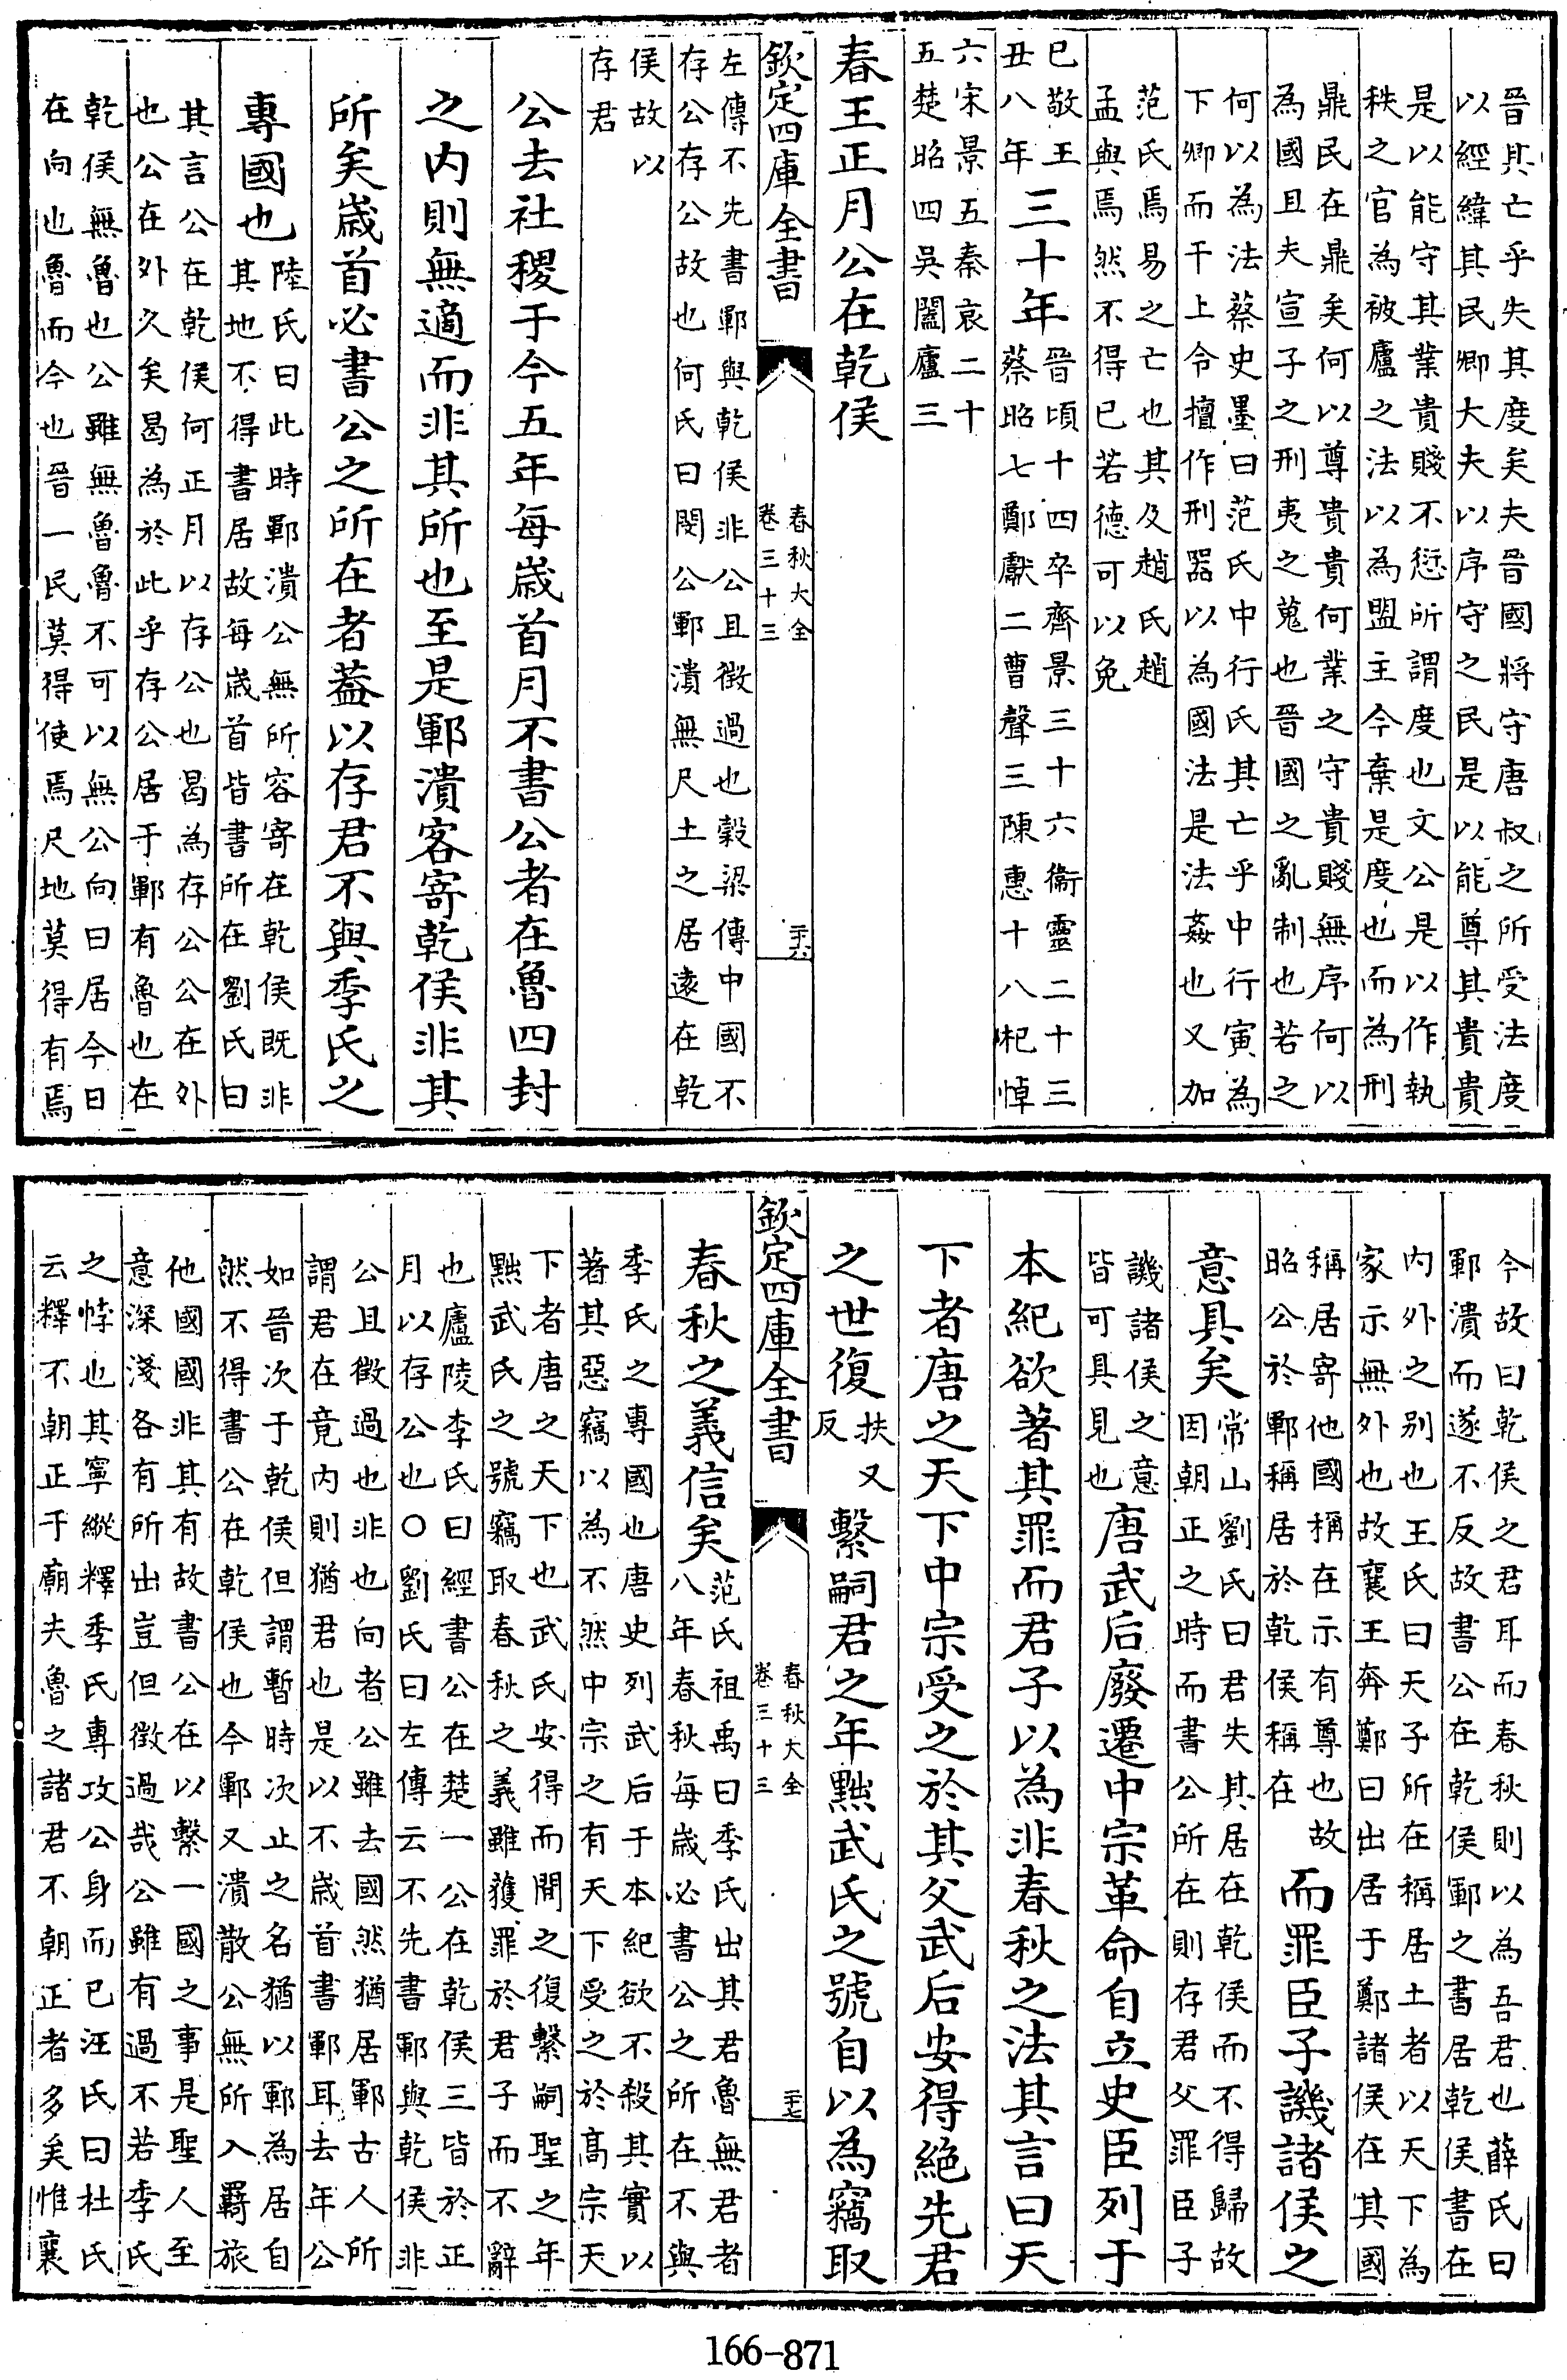 晉其亡乎失其度矣夫晉國將守唐叔之所受法度
以經緯其民卿大夫以序守之民是以能尊其貴貴
是以能守其業貴賤不愆所謂度也文公是以作執
秩之官為被廬之法以為盟主今棄是度也而為刑
鼎民在鼎矣何以尊貴貴何業之守貴賤無序何以
為國且夫宣子之刑夷之蒐也晉國之亂制也若之
何以為法蔡史墨曰范氏中行氏其亡乎中行寅為
下卿而干上令擅作刑器以為國法是法姦也又加
范氏焉易之亡也其及趙氏趙
孟與焉然不得已若德可以免
巳敬王
丑八年
三十年
晉頃十四卒齊景三十六衞靈二十三
蔡昭七鄭獻二曹聲三陳惠十八杞悼
六宋景五秦哀二十
五楚昭四吳闔廬三
春王正月公在乾侯
欽定四庫全書
春秋大全
卷三十三
二十六
左傳不先書鄆與乾侯非公且徵過也穀梁傳中國不
存公存公故也何氏曰閔公鄆潰無尺土之居遠在乾
侯故以
存君
公去社稷于今五年每歲首月不書公者在魯四封
之内則無適而非其所也至是鄆潰客寄乾侯非其
所矣歲首必書公之所在者蓋以存君不與季氏之
專國也
陸氏曰此時鄆潰公無所容寄在乾侯既非
其地不得書居故每歲首皆書所在劉氏曰
其言公在乾侯何正月以存公也曷為存公公在外
也公在外久矣曷為於此乎存公居于鄆有魯也在
乾侯無魯也公雖無魯魯不可以無公向曰居今日
在向也魯而今也晉一民莫得使焉尺地莫得有焉
今故曰乾侯之君耳而春秋則以為吾君也薛氏曰
鄆潰而遂不反故書公在乾侯鄆之書居乾侯書在
内外之别也王氏曰天子所在稱居土者以天下為
家示無外也故襄王奔鄭曰出居于鄭諸侯在其國
稱居寄他國稱在示有尊也故
昭公於鄆稱居於乾侯稱在
而罪臣子譏諸侯之
意具矣
常山劉氏曰君失其居在乾侯而不得歸故
因朝正之時而書公所在則存君父罪臣子
譏諸侯之意
皆可具見也
唐武后廢遷中宗革命自立史臣列于
本紀欲著其罪而君子以為非春秋之法其言曰天
下者唐之天下中宗受之於其父武后安得絶先君
之世復
扶又
反
繫嗣君之年黜武氏之號自以為竊取
欽定四庫全書
春秋大全
卷三十三
二十七
春秋之義信矣
范氏祖禹曰季氏出其君魯無君者
八年春秋每歲必書公之所在不與
季氏之專國也唐史列武后于本紀欲不殺其實以
著其惡竊以為不然中宗之有天下受之於高宗天
下者唐之天下也武氏安得而間之復繫嗣聖之年
黜武氏之號竊取春秋之義雖獲罪於君子而不辭
也廬陵李氏曰經書公在楚一公在乾侯三皆於正
月以存公也○劉氏曰左傳云不先書鄆與乾侯非
公且徵過也非也向者公雖去國然猶居鄆古人所
謂君在竟内則猶君也是以不歲首書鄆耳去年公
如晉次于乾侯但謂暫時次止之名猶以鄆為居自
然不得書公在乾侯也今鄆又潰散公無所入羇旅
他國國非其有故書公在以繫一國之事是聖人至
意深淺各有所出豈但徵過哉公雖有過不若季氏
之悖也其寧縱釋季氏專攻公身而已汪氏曰杜氏
云釋不朝正于廟夫魯之諸君不朝正者多矣惟襄
166-871